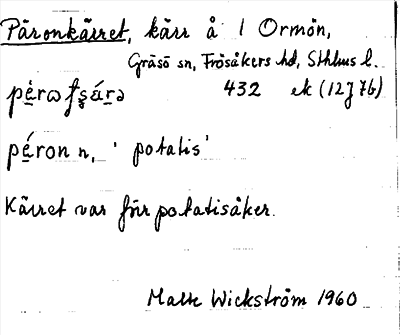 Päronkärret, kärr å 1 Ormön,
Gräsö sn, Frösåkers hd, Sthlms l.
432 ek (12J7b)
péron n, 'potatis'
Kärret var förr potatisåker.
Malte Wickström 1960